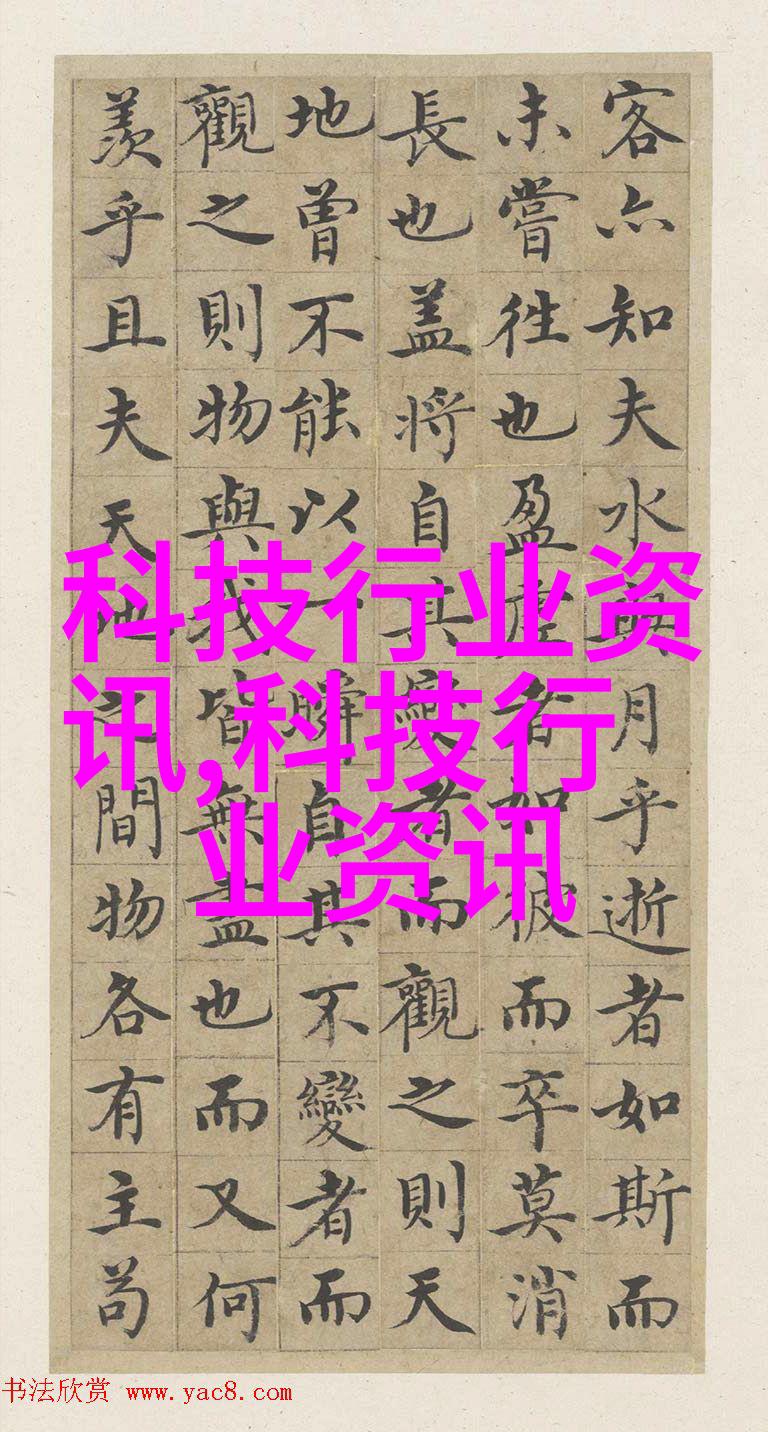 客亦知夫水與月乎逝者如斯而
未嘗往也盈虛者如彼而卒莫消
長也盖將自其變者而觀之則天
地曾不能以一瞬自其不變者而
觀之則物與我皆無盡也而又何
羨乎且夫天地之間物各有主苟
科技行业资
讯,科技行
业资讯
书法欣赏 www.yac8.com